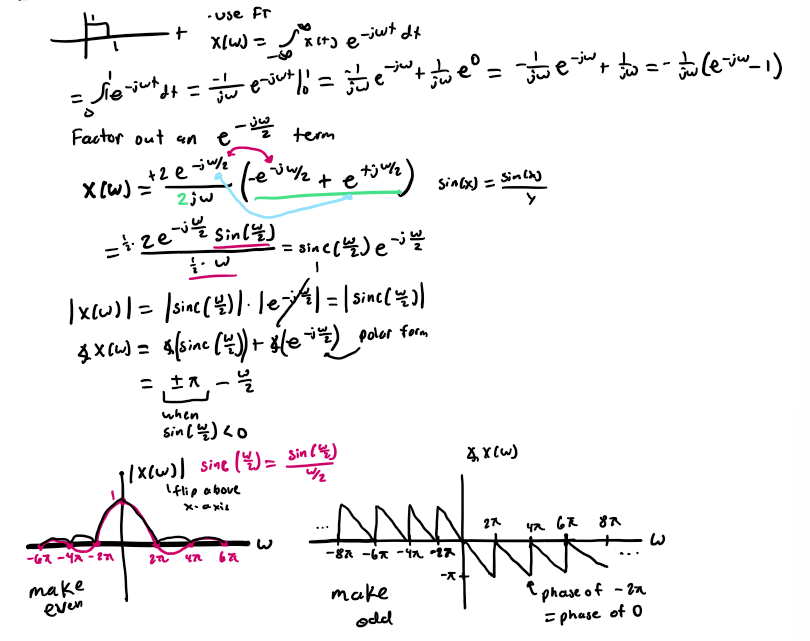 · use FT
1
t
X(ω) = ∫_{-∞}^{∞} x(t) e^{-jωt} dt
= ∫_0^1 1e^{-jωt} dt = \frac{-1}{jω} e^{-jωt} |_0^1 = \frac{-1}{jω} e^{-jω} + \frac{1}{jω} e^0 = -\frac{1}{jω} e^{-jω} + \frac{1}{jω} = -\frac{1}{jω} (e^{-jω} - 1)
Factor out an e^{-j\frac{ω}{2}} term
X(ω) = \frac{+2 e^{-jω/2}}{2jω} · (-e^{-jω/2} + e^{+jω/2})
sin(x) = \frac{sin(x)}{y}
= \frac{\frac{1}{2} · 2 e^{-j\frac{ω}{2}} sin(\frac{ω}{2})}{\frac{1}{2} · ω} = sinc(\frac{ω}{2}) e^{-j\frac{ω}{2}}
1
|X(ω)| = |sinc(\frac{ω}{2})| · |e^{-j\frac{ω}{2}}| = |sinc(\frac{ω}{2})|
∡X(ω) = ∡(sinc(\frac{ω}{2})) + ∡(e^{-j\frac{ω}{2}}) polar form
= ±π - \frac{ω}{2}
when
sin(\frac{ω}{2}) < 0
|X(ω)| sinc(\frac{ω}{2}) = \frac{sin(\frac{ω}{2})}{ω/2}
flip above
x-axis
1
-6π -4π -2π 2π 4π 6π ω
make
even
∡X(ω)
2π 4π 6π 8π
... -8π -6π -4π -2π ω
...
-π
make
odd
phase of -2π
= phase of 0